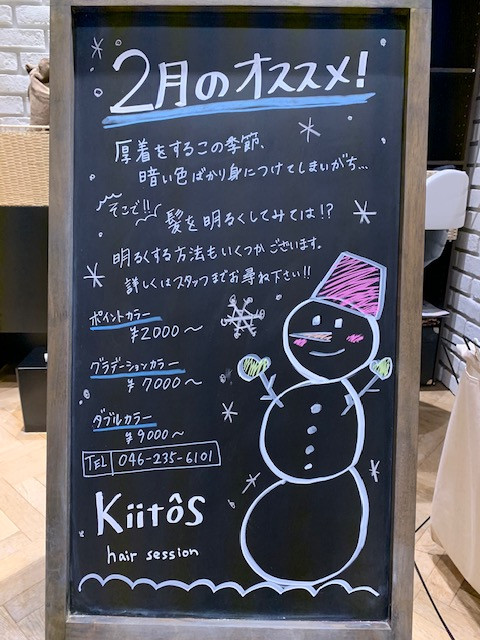 2月のオススメ!
厚着をするこの季節、
暗い色ばかり身につけてしまいがち…
そこで!!
髪を明るくしてみては!?
明るくする方法もいくつかございます。
詳しくはスタッフまでお尋ね下さい!!
ポイントカラー
¥2000〜
グラデーションカラー
¥7000〜
ダブルカラー
¥9000〜
TEL 046-235-6101
Kiitôs
hair session